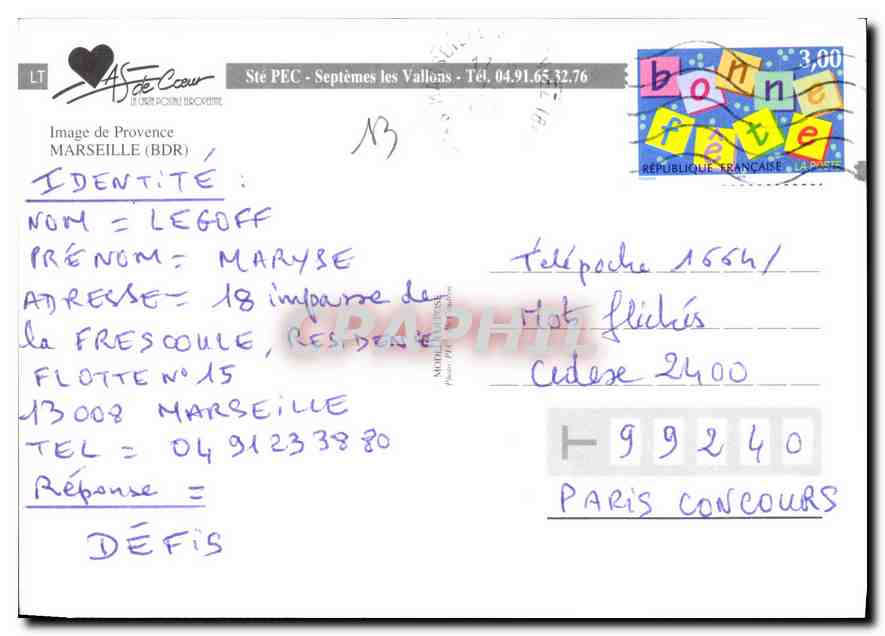 LT
AS de Cœur
LA CARTE POSTALE EUROPEENNE
Sté PEC - Septèmes les Vallons - Tél. 04.91.65.32.76
Image de Provence
MARSEILLE (BDR)
13
3,00
bonne
fête
RÉPUBLIQUE FRANÇAISE LA POSTE
IDENTITÉ :
NOM = LEGOFF
PRÉNOM = MARYSE
ADRESSE = 18 impasse de
la FRESCOULE, RESIDENCE
FLOTTE N° 15
13008 MARSEILLE
TEL = 04 91 23 38 80
Réponse =
DÉFIS
CPAPHIL
Télépoche 1664/
Mots fléchés
Cedex 2400
99240
PARIS CONCOURS